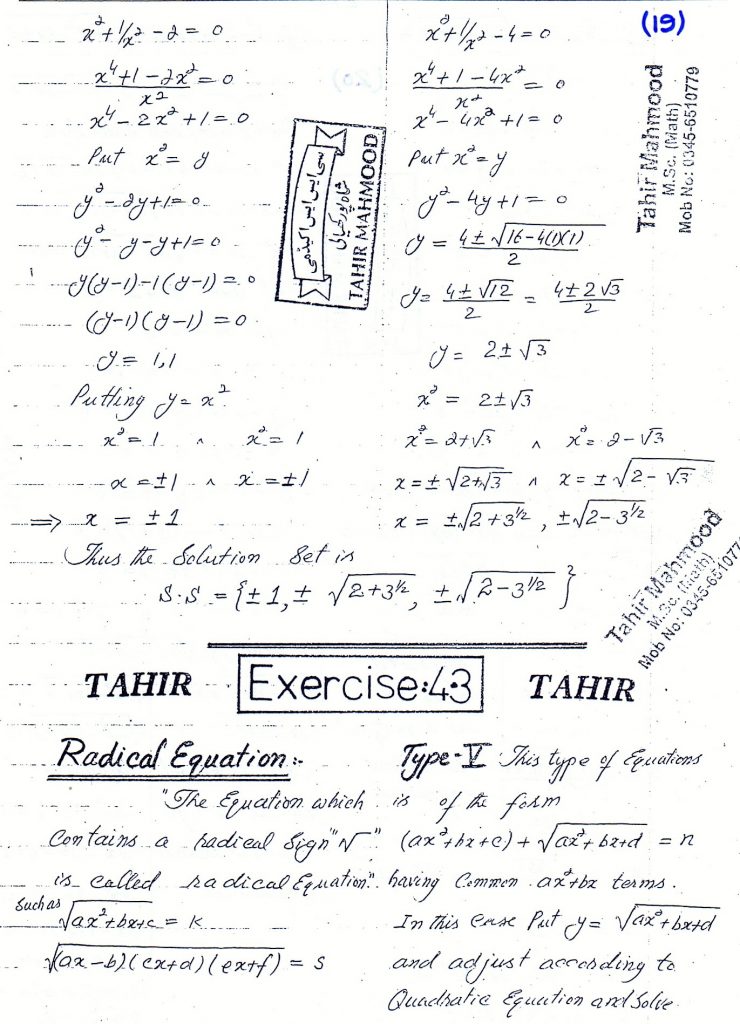 (19)
x²+1/x² - 2 = 0
x⁴+1-2x²/x² = 0
x⁴ - 2x² + 1 = 0
Put x² = y
y² - 2y + 1 = 0
y² - y - y + 1 = 0
y(y-1) - 1(y-1) = 0
(y-1)(y-1) = 0
y = 1,1
Putting y = x²
x² = 1 ^ x² = 1
x = ±1 ^ x = ±1
⇒ x = ±1
x²+1/x² - 4 = 0
x⁴+1-4x²/x² = 0
x⁴ - 4x² + 1 = 0
Put x² = y
y² - 4y + 1 = 0
y = 4±√16-4(1)(1)/2
y = 4±√12/2 = 4±2√3/2
y = 2±√3
x² = 2±√3
x² = 2+√3 ^ x² = 2-√3
x = ±√2+√3 ^ x = ±√2-√3
x = ±√2+3^½, ±√2-3^½
Thus the Solution Set is
S.S = {±1, ±√2+3^½, ±√2-3^½}
سی ایس ایس اکیڈمی
TAHIR MAHMOOD
Tahir Mahmood
M.Sc. (Math)
Mob No: 0345-6510779
Tahir Mahmood
M.Sc. (Math)
Mob No: 0345-651077
TAHIR Exercise:4.3 TAHIR
Radical Equation:-
"The Equation which
Contains a radical Sign "√"
is called radical Equation".
Such as √ax²+bx+c = k
√(ax-b)(cx+d)(ex+f) = s
Type-V This type of Equations
is of the form
(ax²+bx+c) + √ax²+bx+d = n
having Common ax²+bx terms.
In this case Put y = √ax²+bx+d
and adjust according to
Quadratic Equation and Solve